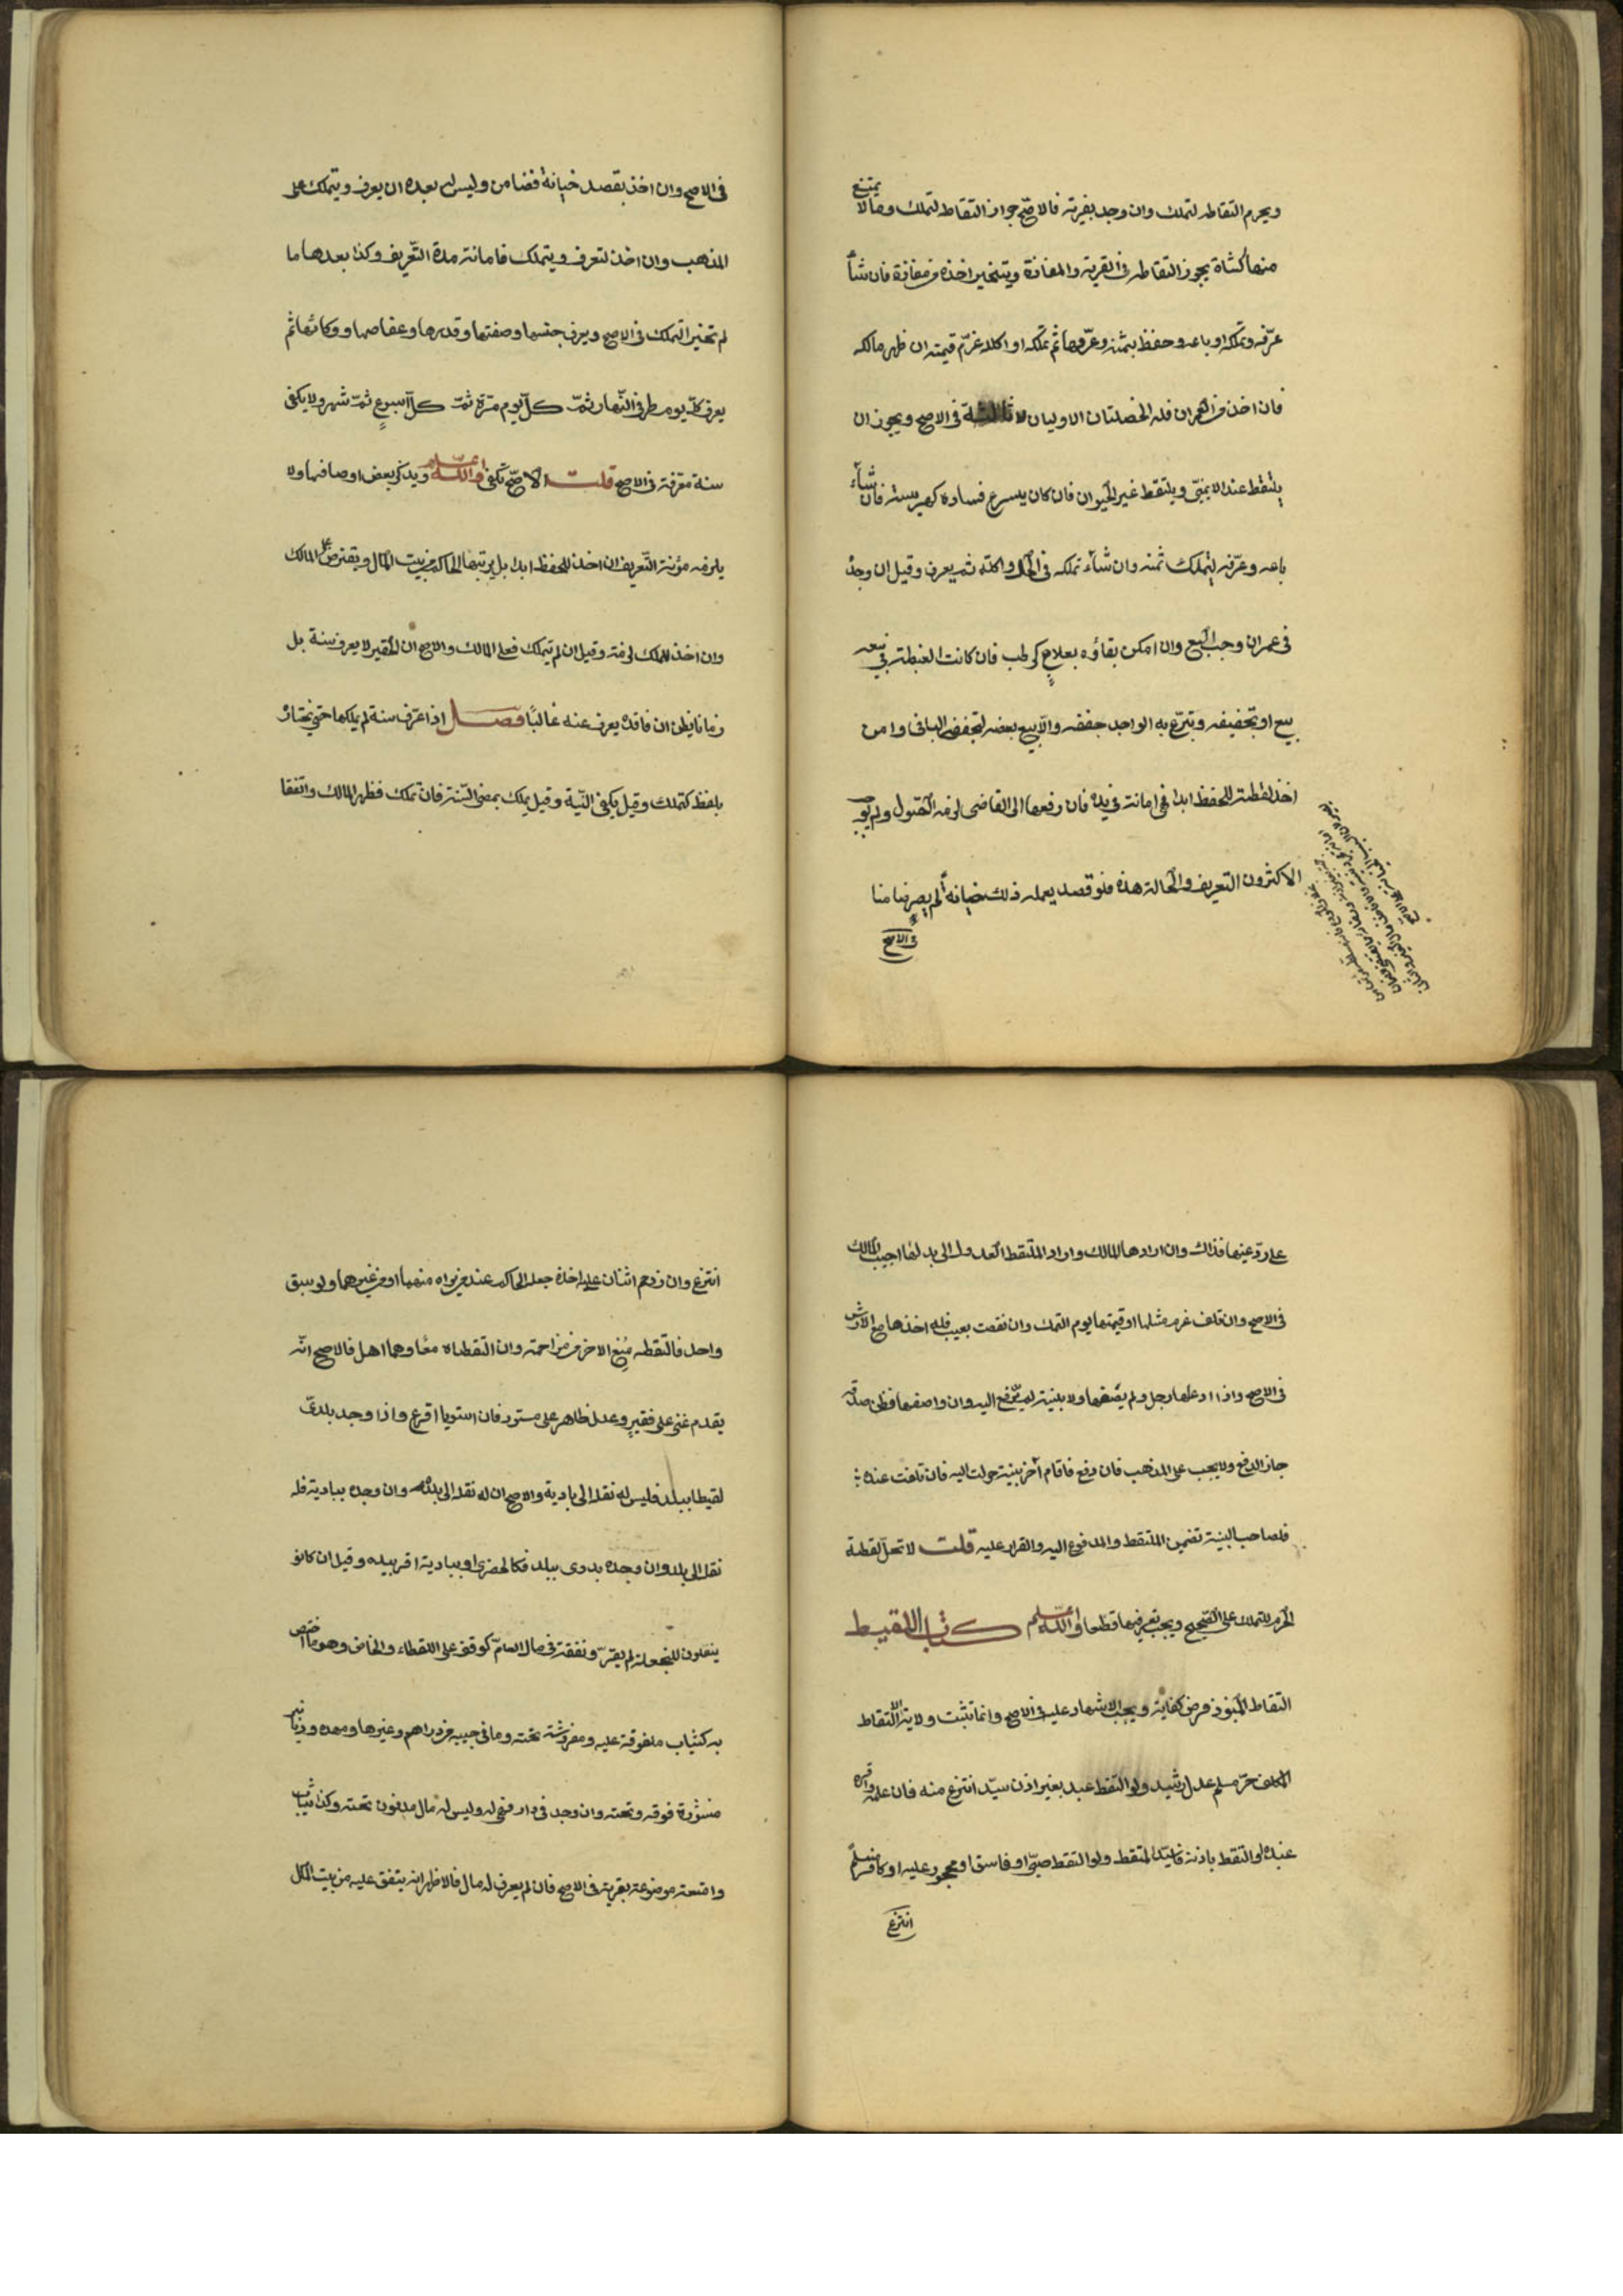 ويحرم التقاطه لتملك وان وجد بقرية فالاصّح جواز التقاطه لتملك ومالا يمتنع
منها كشاة يجوز التقاطه في القرية والمفازة ويتخير اخذه من مفازة فان شأ
عرّفه وتملكه او باعه وحفظ بثمنه وعرّفها ثم تملكه او اكله غرّم قيمته ان ظهر مالكه
فان اخذ من العمران فله الخصلتان الاوليان لا ثالثة في الاصح ويجوز ان
يلتقط عند الايمنيّ ويلتقط غير الحيوان فان كان يسرع فساده كهريسة فان شأ
باعه وعرّفه ليتملك ثمنه وان شأ تملكه في الحال واكله ثم يعرف وقيل ان وجد
في عمران وجب البيع وان امكن بقاؤه بعلاجٍ كرطب فان كانت الغبطة في بيعه
بيع او بتجفيفه وتبرّع به الواجد جففه والّا بيع بعضه لتجفيف الباقي وامن
اخذ لقطة للحفظ ابدا فهي امانة في يده فان رفعها الى القاضي لزمه القبول ولم يوجب
الاكثرون التعريف والحالة هذه فلو قصد بعمله ذلك خيانةً لم يصر ضامنا
في الاصح
في الاصح وان اخذ بقصد خيانة فضامن وليس له بعده ان يعرف ويتملك على
المذهب وان اخذ لتعرف ويتملك فامانة مدة التّعريف وكذا بعدها ما
لم تختير التملك في الاصح ويعرف جنسها وصفتها وقدرها وعفاصها ووكائها ثم
يعرف كلّ يوم طرفي النّهار ثمّ كلّ يوم مرّة ثمّ كلّ اسبوعٍ ثمّ شهر ولا يكفي
سنة متفرقة في الاصح قلت الاصّح تكفي والله اعلم ويذكر بعض اوصافها ولا
يلزمه مؤنة التّعريف ان اخذ للحفظ ابدا بل يرتبها الحاكم من بيت المال ويقترض على المالك
وان اخذ للملك لزمته وقيل ان لم يتملك فعلى المالك والاصح ان الحقير لا يعرف سنة بل
زمانا يظن ان فاقده يعرف عنه غالبًا فصل اذا عرّف سنة لم يملكها حتى نختاره
بلفظ كتملك وقيل يكفي النّية وقيل يملك بمضي السّنة فان تملك فظهر المالك واتفقا
على ردّ عينها فذاك وان ارادها المالك واراد الملتقط العدول الى بدلها اجيب المالك
في الاصح وان تلف غرم مثلها او قيمتها يوم التملك وان نقصت بعيب فله اخذها مع الارش
في الاصح واذا ادعاها رجل ولم يصفها ولا بنية لم يدفع اليه وان واصفها فظن صدقه
جاز الدفع ولا يجب على المذهب فان دفع فاقام آخر بينة حولت اليه فان تلفت عنده
فلصاحب البينة تضمين الملتقط والمدفوع اليه والقرار عليه قلت لا تحلّ لقطة
الحرم للتملك على الصّحيح ويجب تعريفها قطعا والله اعلم كتاب اللقيط
التقاط المنبوذ فرض كفاية ويجب الاشهاد عليه في الاصح وانما تثبت ولاية الالتقاط
المكلف حرّ مسلم عدل رشيد ولو التقط عبد بغير اذن سيّد انتزع منه فان علمه واقره
عنده او التقط باذنه فالسيّد الملتقط ولو التقط صبيّ او فاسق او محجور عليه او كافر مسلمًا
انتزع
انتزع وان ازدحم اثنان على اخذه جعله الحاكم عند من يراه منهما او من غيرهما ولو سبق
واحد فالتقطه مُنِع الاخر من مزاحمته وان التقطاه معًا وهما اهل فالاصح انّه
يقدم غني على فقيرٍ وعدل ظاهر على مستور فان استويا اقرع واذا وجد بلديّ
لقيطا ببلد فليس له نقله الى بادية والاصح ان له نقله الى بلد وان وجده ببادية فله
نقله الى بلد وان وجده بدوي ببلد فكالحضري او ببادية اقر بيده وقيل ان كانو
ينقلون للنجعة لم يقرّ ونفقة في مال العامّ كوقف على اللقطاء والخاص وهو ما اختص
به كثياب ملفوفة عليه ومفروشة تحته وما في جيبه من دراهم وغيرها ومهده ودنانير
منشورة فوقه وتحته وان وجد في دار فهي له وليس له مال مدفون تحته وكذا ثياب
وامتعة موضوعة بقربه في الاصح فان لم يعرف له مال فالاظهر انه ينفق عليه من بيت المال